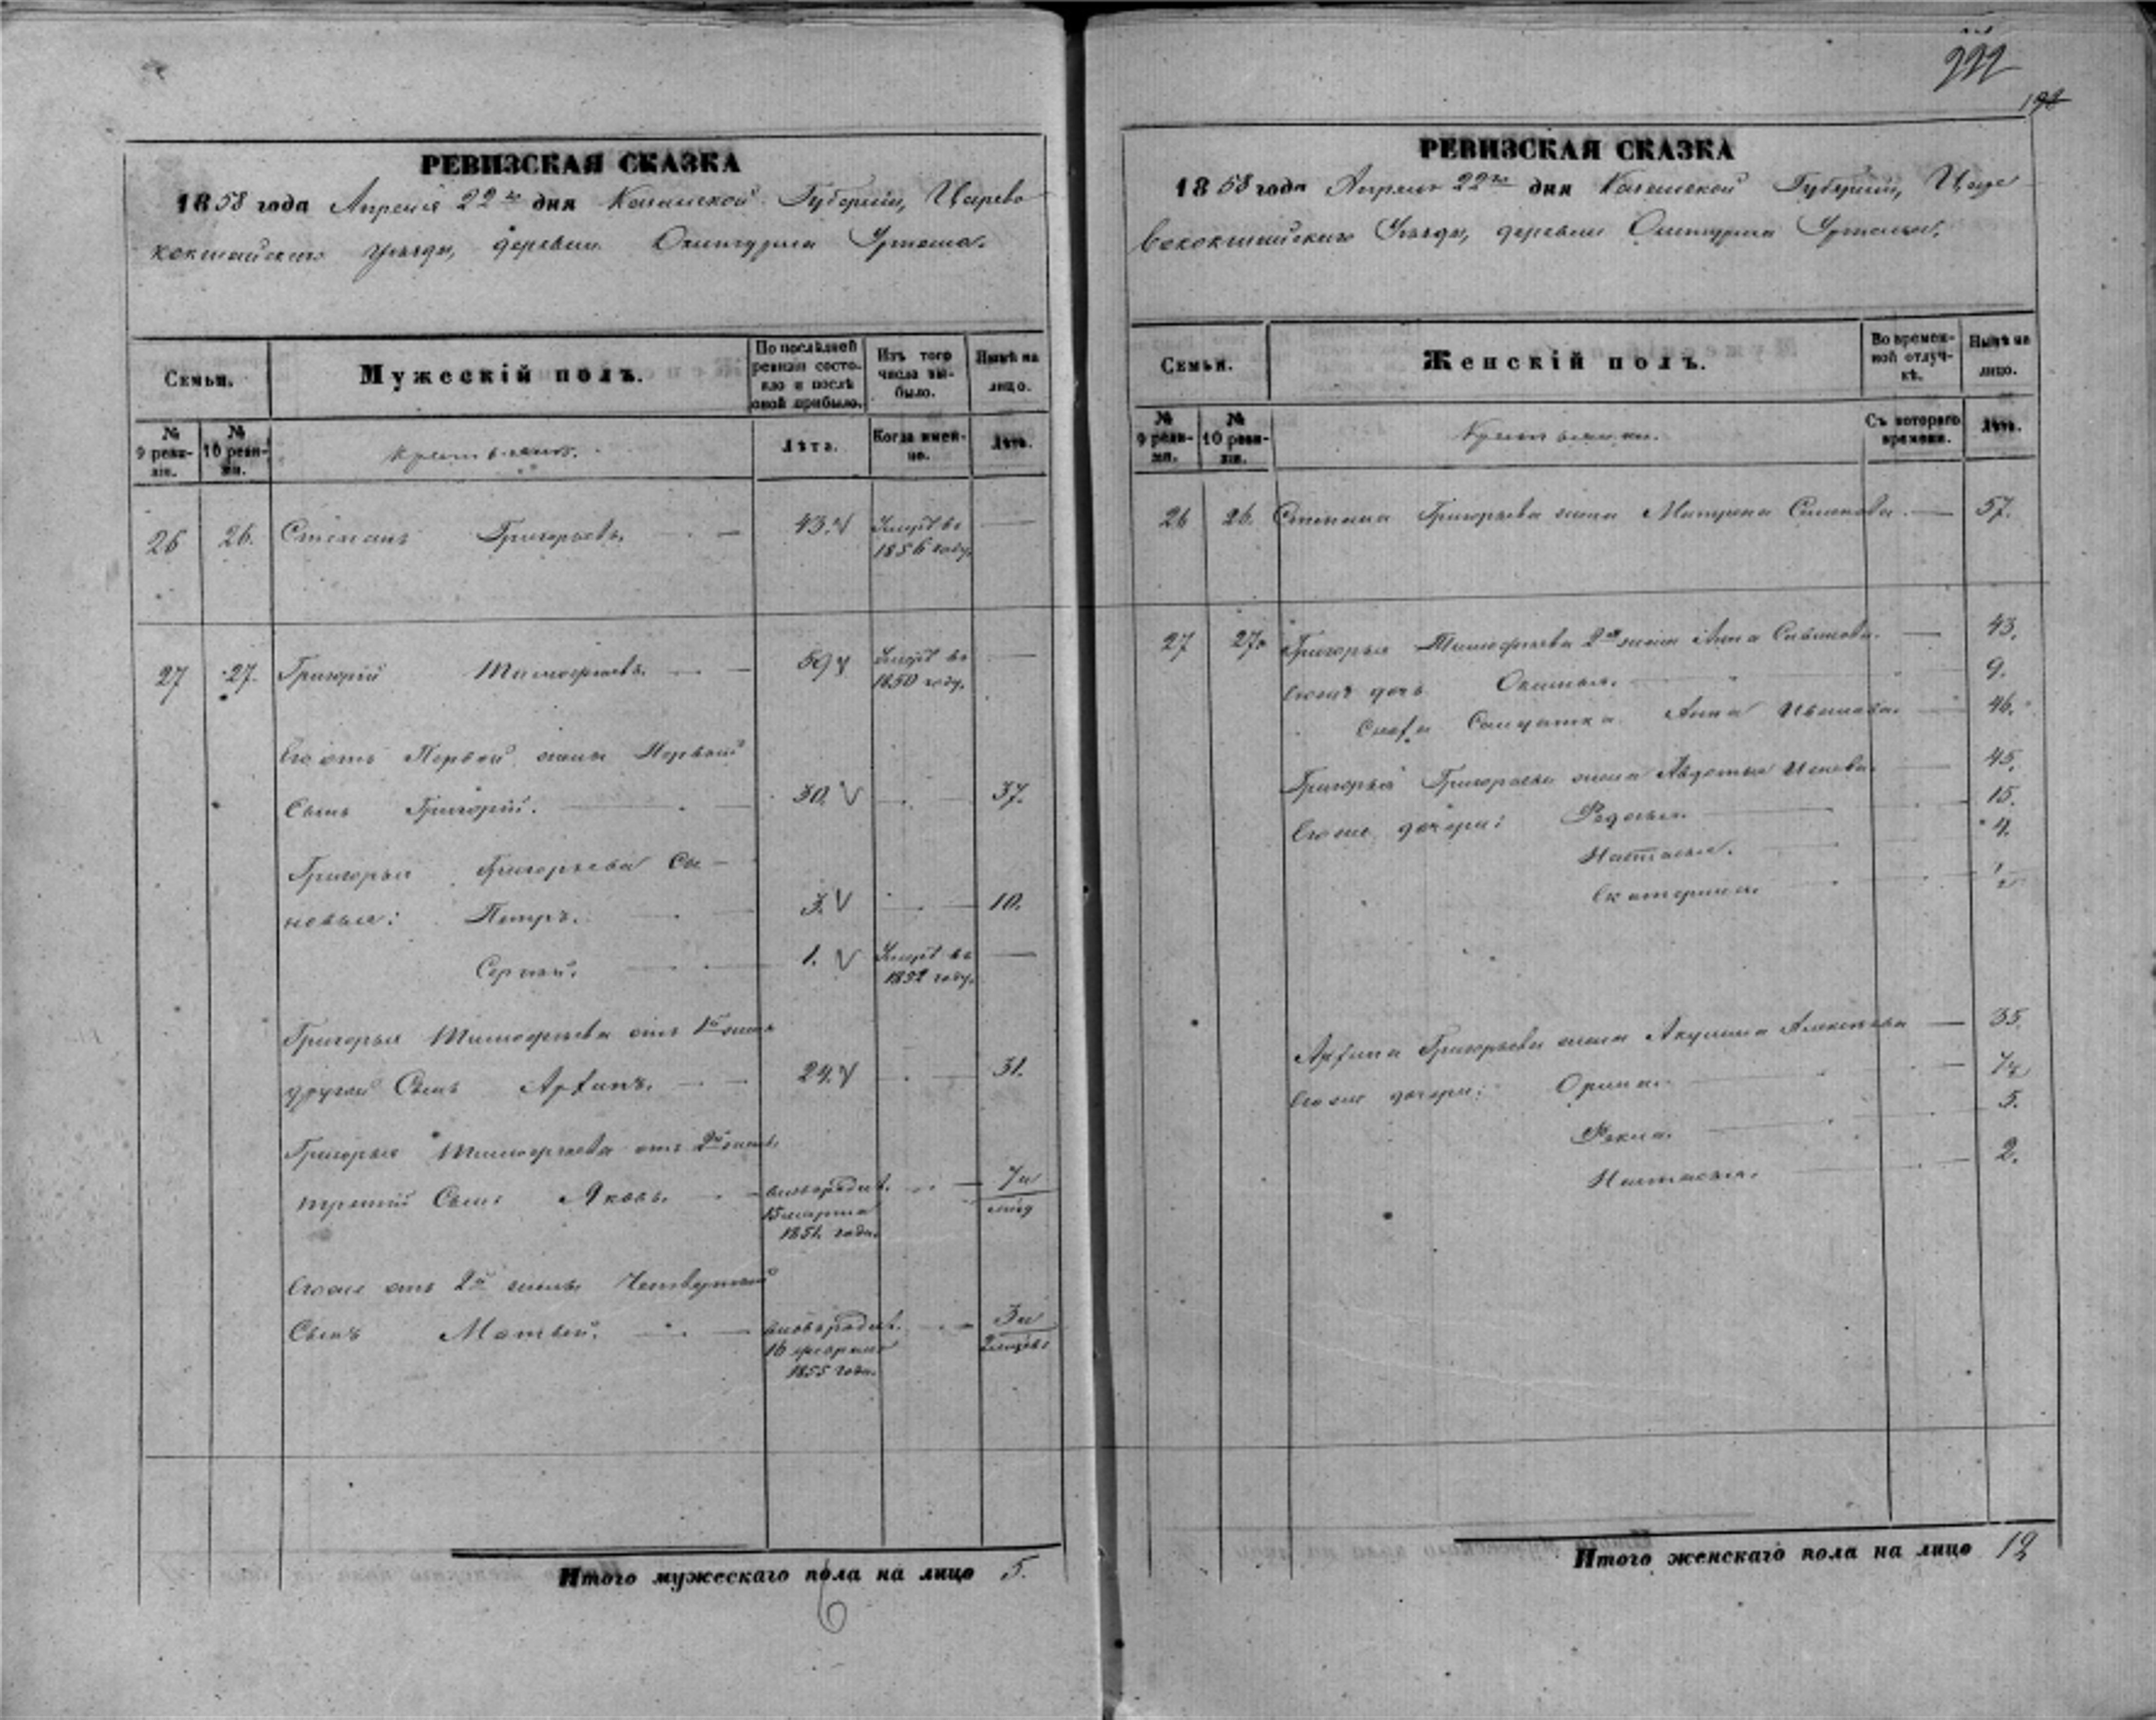 222
192
РЕВИЗСКАЯ СКАЗКА
1858 года Апреля 22го дня Казанской Губернiи, Царево
кокшайскаго Уезда, деревни
Семьи.
Мужескiй полъ.
По последней ревизiи состояло и после оной прибыло.
Изъ того числа выбыло.
Ныне на лицо.
№ 9 ревизiи.
№ 10 ревизiи.
Крестьяне.
Лета.
Когда именно.
Лета.
26 26. Степанъ Григорьевъ. — 43. Умеръ въ 1856 году. —
27 27. Григорiй Тимофеевъ. — 59 Умеръ въ 1850 году. —
Его отъ Первой жены Первый
Сынъ Григорiй. — 30. — 37.
Григорья Григорьева Сы-
новья: Петръ. — 3. — 10.
Сергей. — 1. Умеръ въ 1852 году. —
Григорья Тимофеева отъ 1й жены
другой Сынъ Архипъ. — 24. — 31.
Григорья Тимофеева отъ 2й жены
третiй Сынъ Яковъ. — вновьрожд. 15 марта 1851. года. — 7 и
Егоже отъ 2й жены Четвертый
Сынъ Матвей. — вновьрожд. 16 февраля 1855 года. — 3 и 2 месяца
Итого мужескаго пола на лицо 5.
6
РЕВИЗСКАЯ СКАЗКА
1858 года Апреля 22го дня Казанской Губернiи, Царе
вококшайскаго Уезда, деревни
Семьи.
Женскiй полъ.
Во временной отлучке.
Ныне на лицо.
№ 9 ревизiи.
№ 10 ревизiи.
Крестьянки.
Съ котораго времени.
Лета.
26 26. Степана Григорьева жена Матрена — 57.
27 27. Григорья Тимофеева 2я жена Анна — 43.
Егоже дочь — 9.
Снаха Солдатка Анна Иванова. — 46.
Григорья Григорьева жена Авдотья — 45.
Егоже дочери: Федосья. — 15.
Настасья. — 4.
Екатерина. —
Архипа Григорьева жена Акулина Алексеева — 35.
Егоже дочери: Орина. — 14
Фекла. — 5.
Настасья. — 2.
Итого женскаго пола на лицо 12